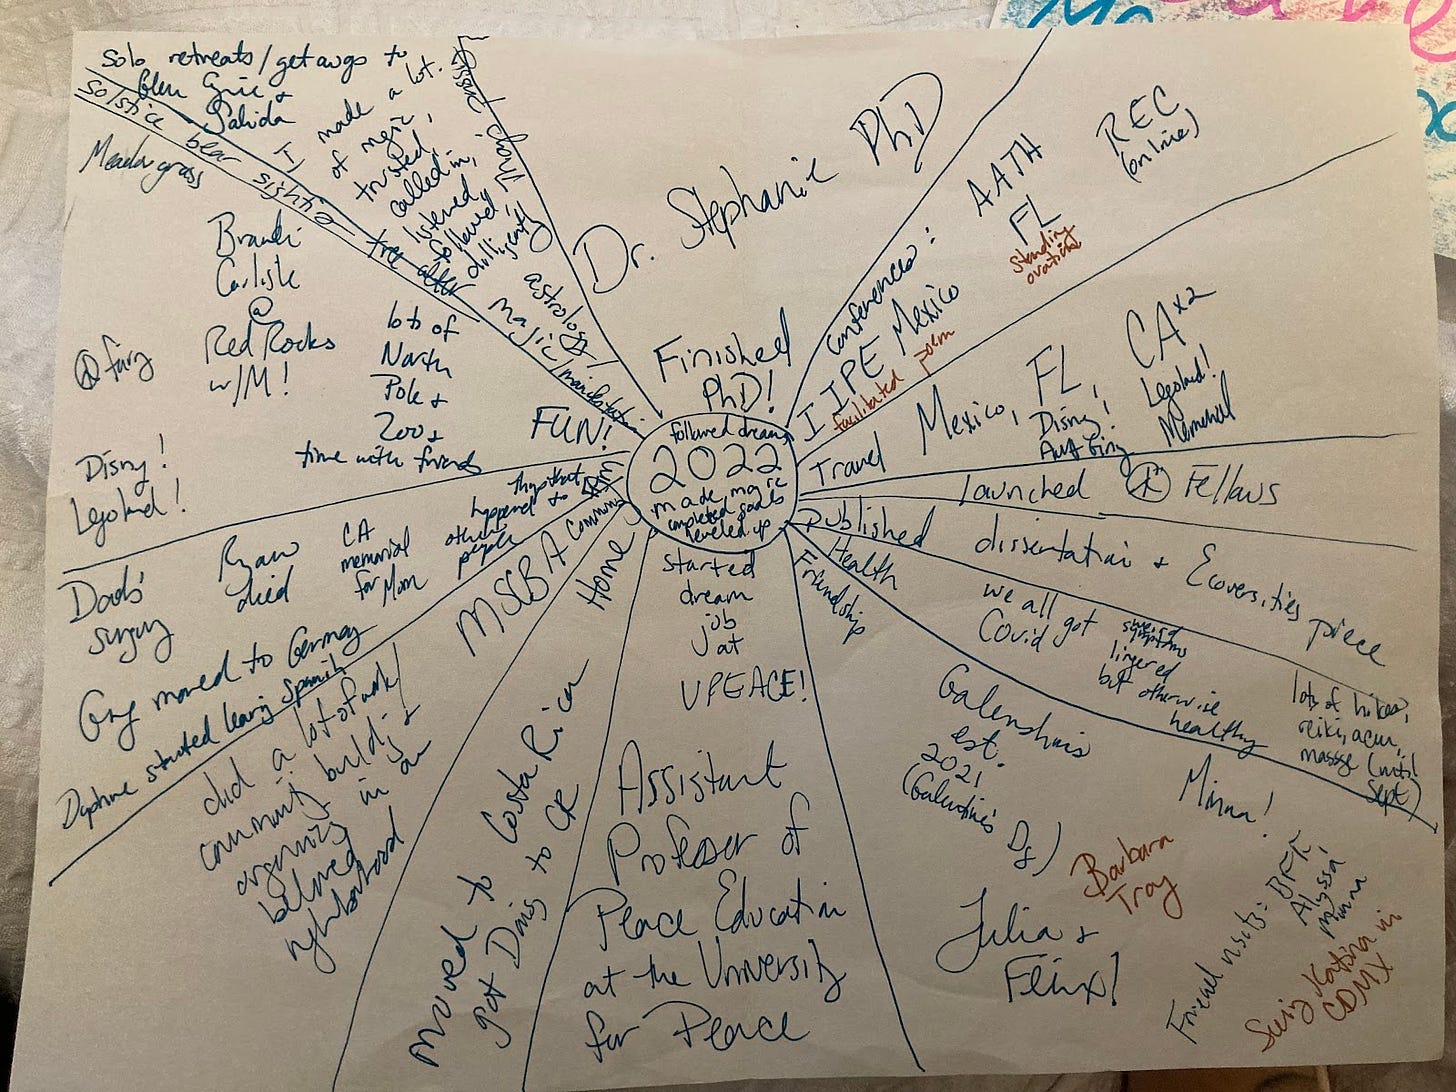 followed dreams
2022
made magic
completed goals
leveled up
Finished
PhD!
Dr. Stephanie PhD
Conferences:
IIPE Mexico
facilitated poem
AATH
FL
standing
ovation
REC
(online)
Travel Mexico, FL, CAx2
Disny!
Legoland!
Memorial
launched Fellows
published dissertation & Ecoversities piece
Health
we all got
Covid
symptoms
lingered
but otherwise
healthy
lots of hikes,
reiki, acu,
massge (until
Sept)
Friendship
Galenshuis
est.
2021
(Galentine's
Julia &
Felix!
Barbara
Troy
Minna!
Friend visits: BFK
Alyssa
Minna
Seeing Katrina in
CDMX
started
dream
job
at
UPEACE!
Assistant
Professor of
Peace Education
at the University
for Peace
Home
moved to Costa Rica
got Davis to CR
Community
MSCBA
did a lot of work/
community building &
organizing in our
beloved
nghborhood
things that
happened to
other
people
CA
memorial
for Mom
Ryan
died
Dad's
surgery
Greg moved to Germany
Daphne started learning Spanish
FUN!
lots of
North
Pole &
Zoos
time with friends
Brandi
Carlisle
@
Red Rocks
w/M!
Meadowgrass
Disny!
Legoland!
magic/manifestation
astrology/
I made a lot
of magic,
trusted,
called in,
listened,
followed,
diligently
solo retreats/getawys to
Glen Eyrie &
Salida
solstice bear sighting
tree alter